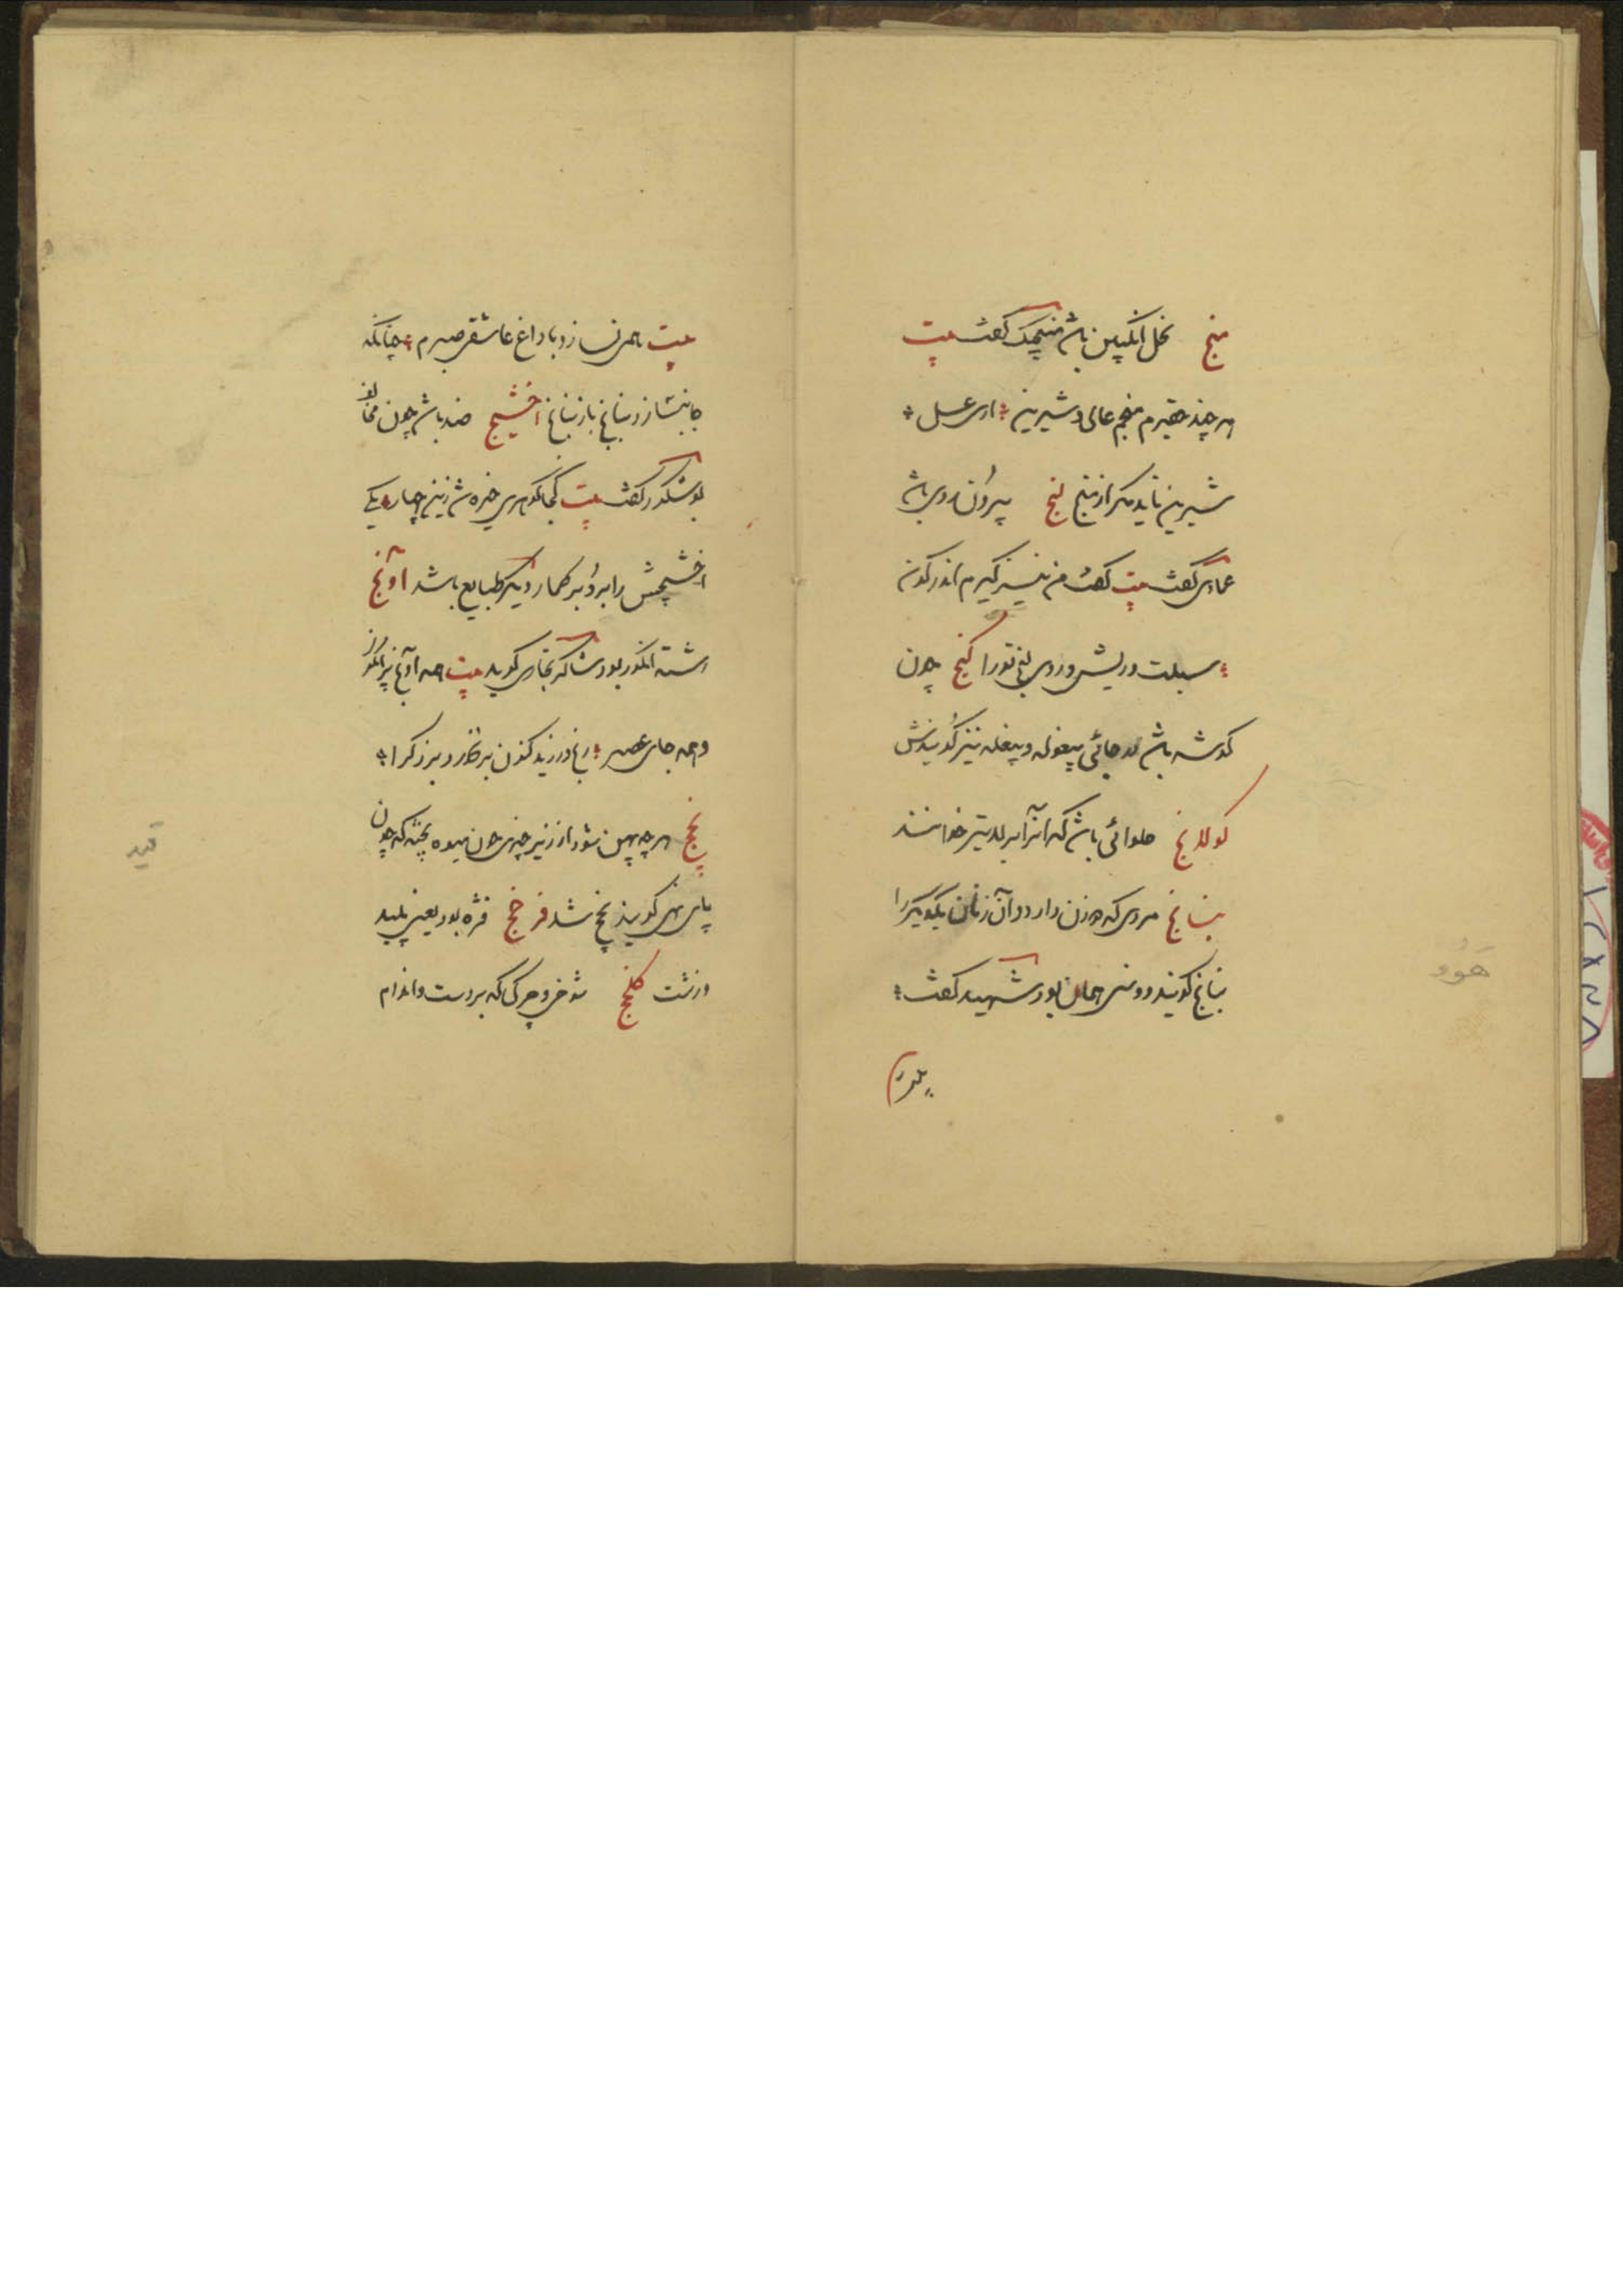 منج نحل انگبین باشد منجیک گفت بیت
هر چند حقیرم سخنم عالی و شیرین آری عسل
شیرین ناید مگر از منج لنج بیرون روی باشد
عماری گفت بیت گفت من نیز گیرم اندر کون
سبلت و ریش و روی لنج تو را کنج چون
گوشه باشد در جائی پیغوله و پیغله نیز گویندش
کولانج حلوائی باشد که آنرا ابرلا نیز خوانند
بنانج مردی که دو زن دارد و آن زنان یکدیگر را
بنانج گویند و وسنی همان بود شهید گفت
بیت
هوو
بیت همی نسازد با داغ عاشقی صبرم چنانکه
جا بنسازد بنانج باز بنانج اخشیج ضد باشد چون مخالف
بوشکور گفت بیت کجا گوهری خیره شد زین چهار یکی
اخشیجش را برو بر گمار و دیگر طبایع باشد آونج
رشته انگور بود شاکر بخاری گوید بیت همه آونج پر انگور
و همه جای عصیر رنج ورزید کنون بر بخورد برزگرا
پخج هر چه پهن شود از زیر چیزی چون میوه پخته که چون
پای بر نهی گویند پخج شد فرخج فژه بود یعنی پلید
و زشت کلخج شوخ و چرکی که بر دست و اندام